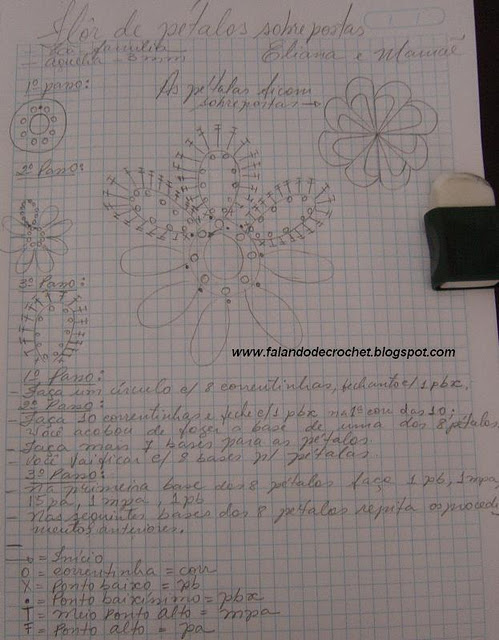 Flor de pétalas sobrepostas
- Fio família
- agulha - 3mm
Eliana e Mamãe
1º passo:
As pétalas ficam
sobrepostas →
2º Passo:
3º Passo:
www.falandodecrochet.blogspot.com
1º Passo:
- Faça um círculo c/ 8 correntinhas, fechando c/ 1 pbx.
2º Passo:
- Faça 10 correntinhas e feche c/ 1 pbx na 1ª corr das 10;
você acabou de fazer a base de uma das 8 pétalas
- Faça mais 7 bases para as pétalas.
- Você vai ficar c/ 8 bases p/ pétalas.
3º Passo:
- Na primeira base das 8 pétalas faça 1 pb, 1 mpa,
15 pa, 1 mpa, 1 pb
- Nas seguintes bases das 8 pétalas repita os procedi
mentos anteriores.
= Início
O = correntinha = corr
X = Ponto baixo = pb
• = Ponto baixíssimo = pbx
T = meio ponto alto = mpa
Ŧ = Ponto alto = pa